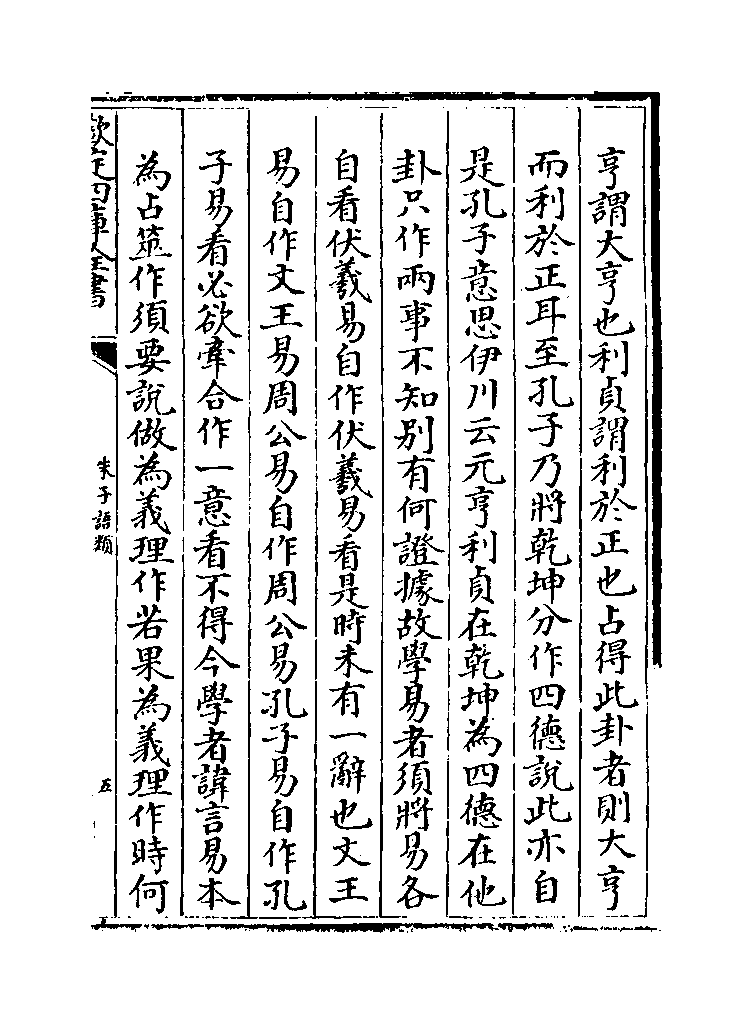 亨謂大亨也利貞謂利於正也占得此卦者則大亨
而利於正耳至孔子乃將乾坤分作四德說此亦自
是孔子意思伊川云元亨利貞在乾坤為四德在他
卦只作兩事不知别有何證據故學易者須將易各
自看伏羲易自作伏羲易看是時未有一辭也文王
易自作文王易周公易自作周公易孔子易自作孔
子易看必欲牽合作一意看不得今學者諱言易本
為占筮作須要說做為義理作若果為義理作時何
欽定四庫全書
朱子語類
五